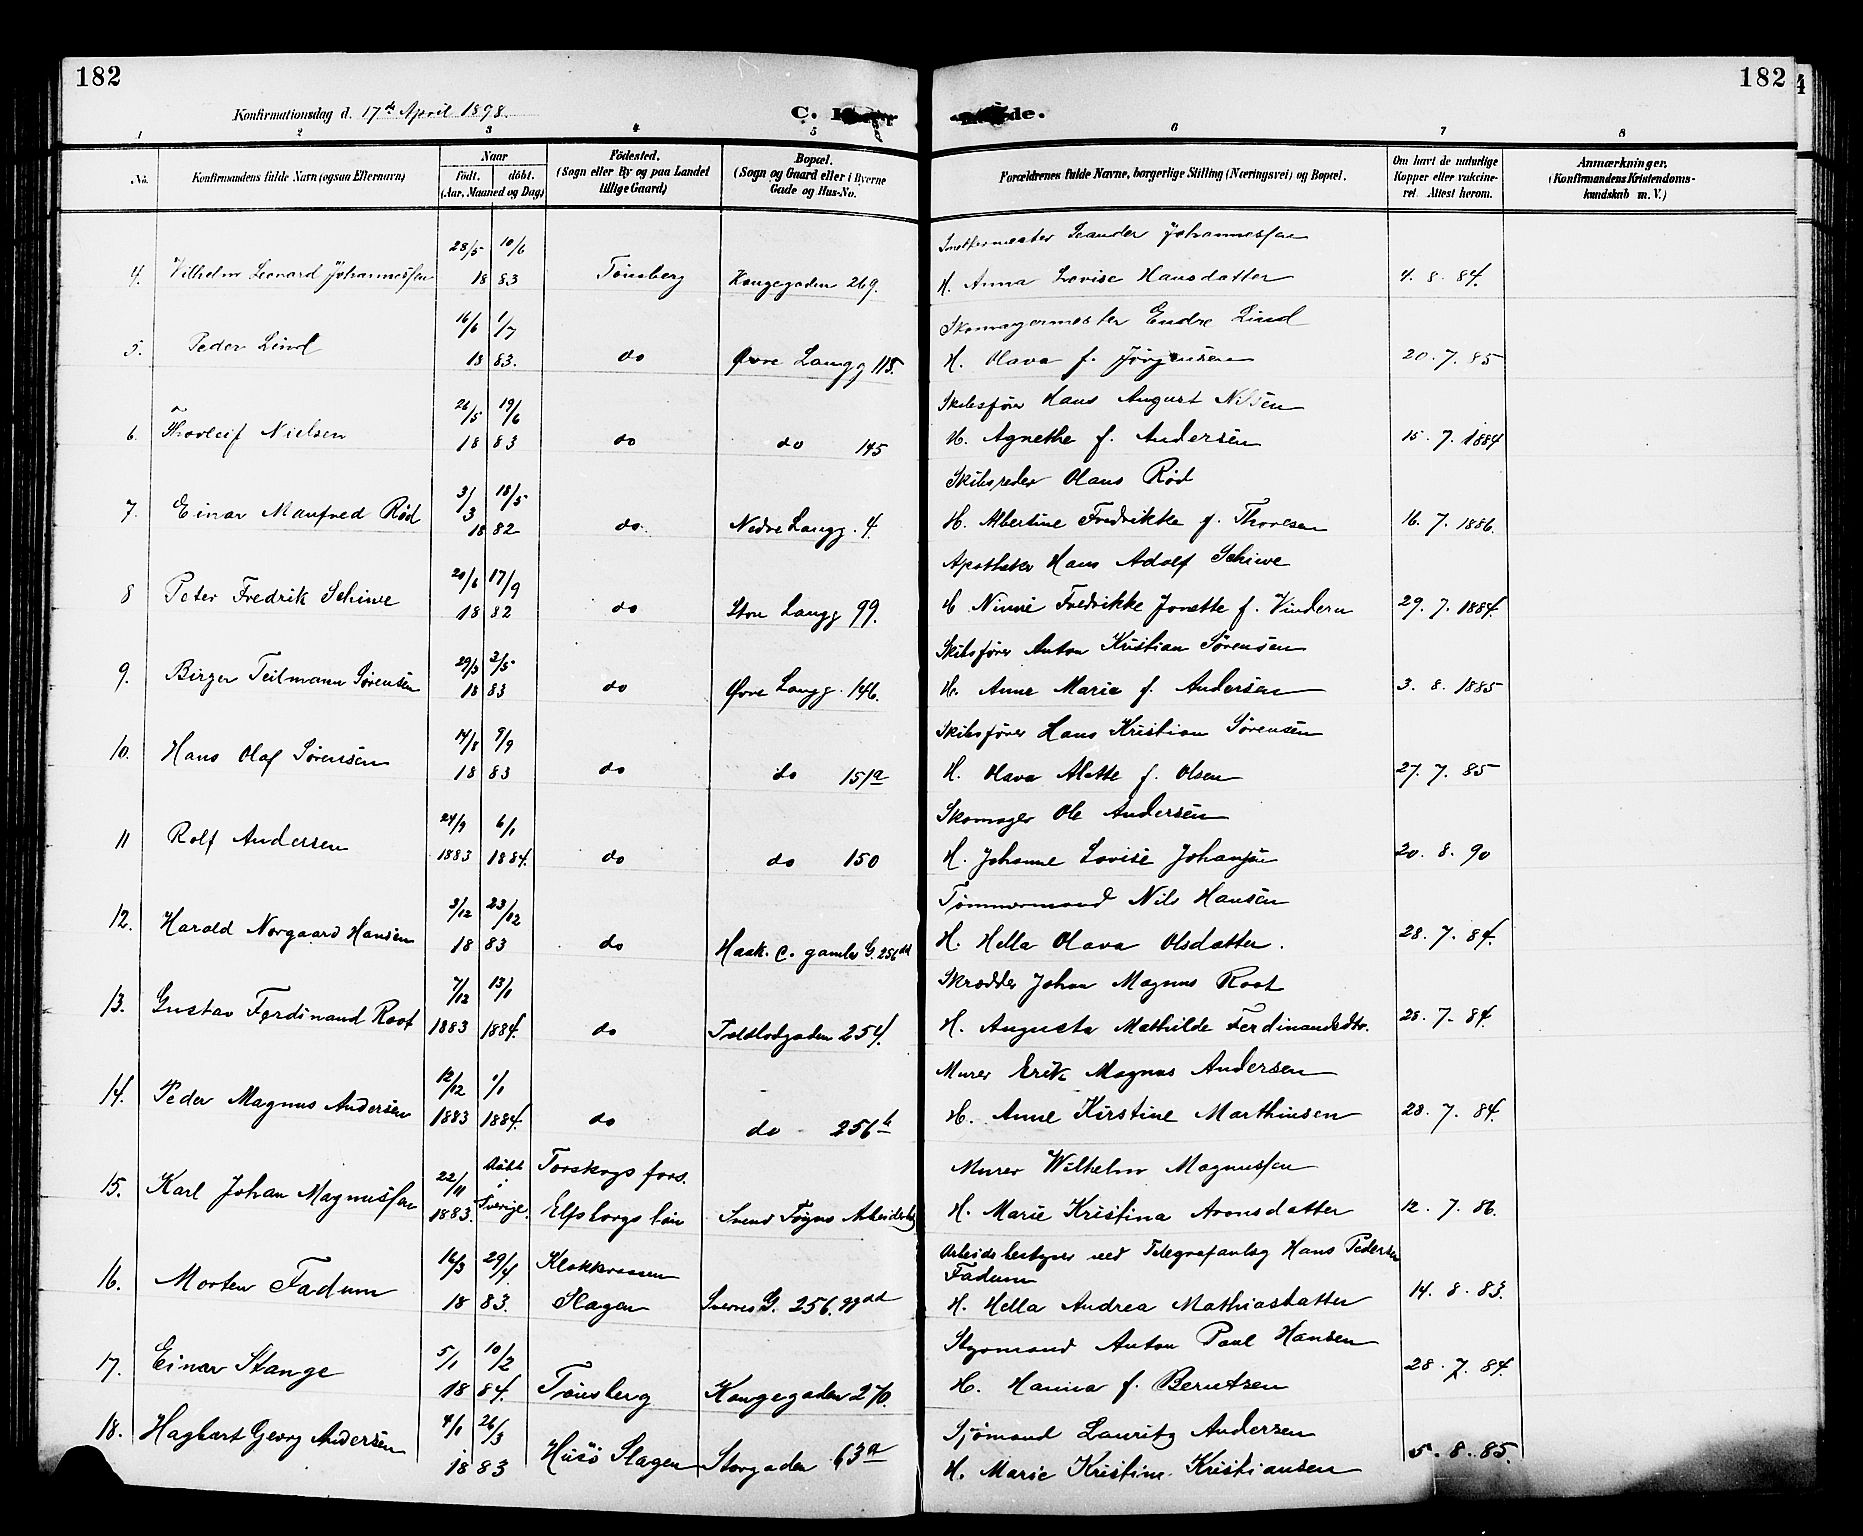 182
182
Konfirmationsdag d. 17de April 1898.
C.
de.
1 2 3 4 5 6 7 8
No.
Konfirmandens fulde Navn (ogsaa Efternavn)
Naar
födt. döbt.
(Aar, Maaned og Dag)
Födested.
(Sogn eller By og paa Landet
tillige Gaard)
Bopæl.
(Sogn og Gaard eller i Byerne
Gade og Hus-No.
Forældrenes fulde Navne, borgerlige Stilling (Næringsvei) og Bopæl.
Om havt de naturlige
Kopper eller vakcine-
ret. Attest herom.
Anmærkninger.
(Konfirmandens Kristendoms-
kundskab m. V.)
28/5 10/6 Leander Johannessen
4. Vilhelm Leonard Johannessen 18 83 Tönsberg Kongegaden 269. H. Anna Lovise Hansdatter 4. 8. 84.
16/6 1/7 Skomagermester Endre Lind
5. Peder Lind 18 83. do Øvre Langg 115. H. Olava f. Jörgensen 20. 7. 85
26/5 19/6 Skibsfører Hans August Nilsen
6. Thorleif Nielsen 18 83 do do 145 H. Agnethe f. Andersen 15. 7. 1884
3/3 18/5 Skibsreder Olaus Rød
7. Einar Manfred Rød 18 82 do. Nedre Langg. 4. H. Albertine Fredrikke f. Thoresen 16. 7. 1886.
20/6 17/9 Apotheker Hans Adolf Schiwe
8 Peter Fredrik Schiwe 18 82 do Store Langg 99. H Ninni Fredrikke Jonette f. Vindern 29. 7. 1884.
29/3 2/5 Skibsfører Anton Kristian Sørensen
9. Birger Teilmann Sørensen 18 83 do Øvre Langg. 146. H. Anne Marie f. Andersen 3. 8. 1885
14/8 9/9 Skibsfører Hans Kristian Sørensen
10. Hans Olaf Sørensen 18 83 do do 151a H. Olava Alette f. Olsen 27. 7. 85
24/9 6/1 Skomager Ole Andersen
11 Rolf Andersen 1883 1884. do do 150 H. Johanne Lovise Johansen 20. 8. 90
3/12 23/12 Tømmermand Nils Hansen
12. Harald Norgaard Hansen 18 83 do Haak. C. gamles G. 256dd H. Hella Olava Olsdatter. 28. 7. 84.
7/12 13/1 Skrædder Johan Magnus Root
13. Gustav Ferdinand Root 1883 1884. do Toldbodgaden 254. H. Augusta Mathilde Ferdinandsdtr. 28. 7. 84.
12/12 1/1 Murer Erik Magnus Andersen
14. Peder Magnus Andersen 1883 1884. do do 256h H. Anne Kirstine Marthinsen 28. 7. 84.
22/11 döbt i Torskogs fors. Murer Wilhelm Magnussen
15. Karl Johan Magnussen 1883. Sverige. Elfsborgs län Svend Foyns H. Marie Kristina Aronsdatter 12. 7. 86.
16/3 29/4. Arbeidsbestyrer ved Telegrafanlæg Hans Pedersen
Fadum
16. Morten Fadum 18 83. Slagen Sverres G. 256. H. Hella Andrea Mathiasdatter 14. 8. 83.
5/1 10/2 Styrmand Anton Paul Hansen
17. Einar Stange 18 84. Tönsberg Kongegaden 270. H. Hanna f. Berntsen 28. 7. 84.
4/1 26/3 Sjømand Lauritz Andersen
18. Hagbart Georg Andersen 18 83 Husö Slagen Storgaden 63a H. Marie Kristine Kristiansen 5. 8. 85.